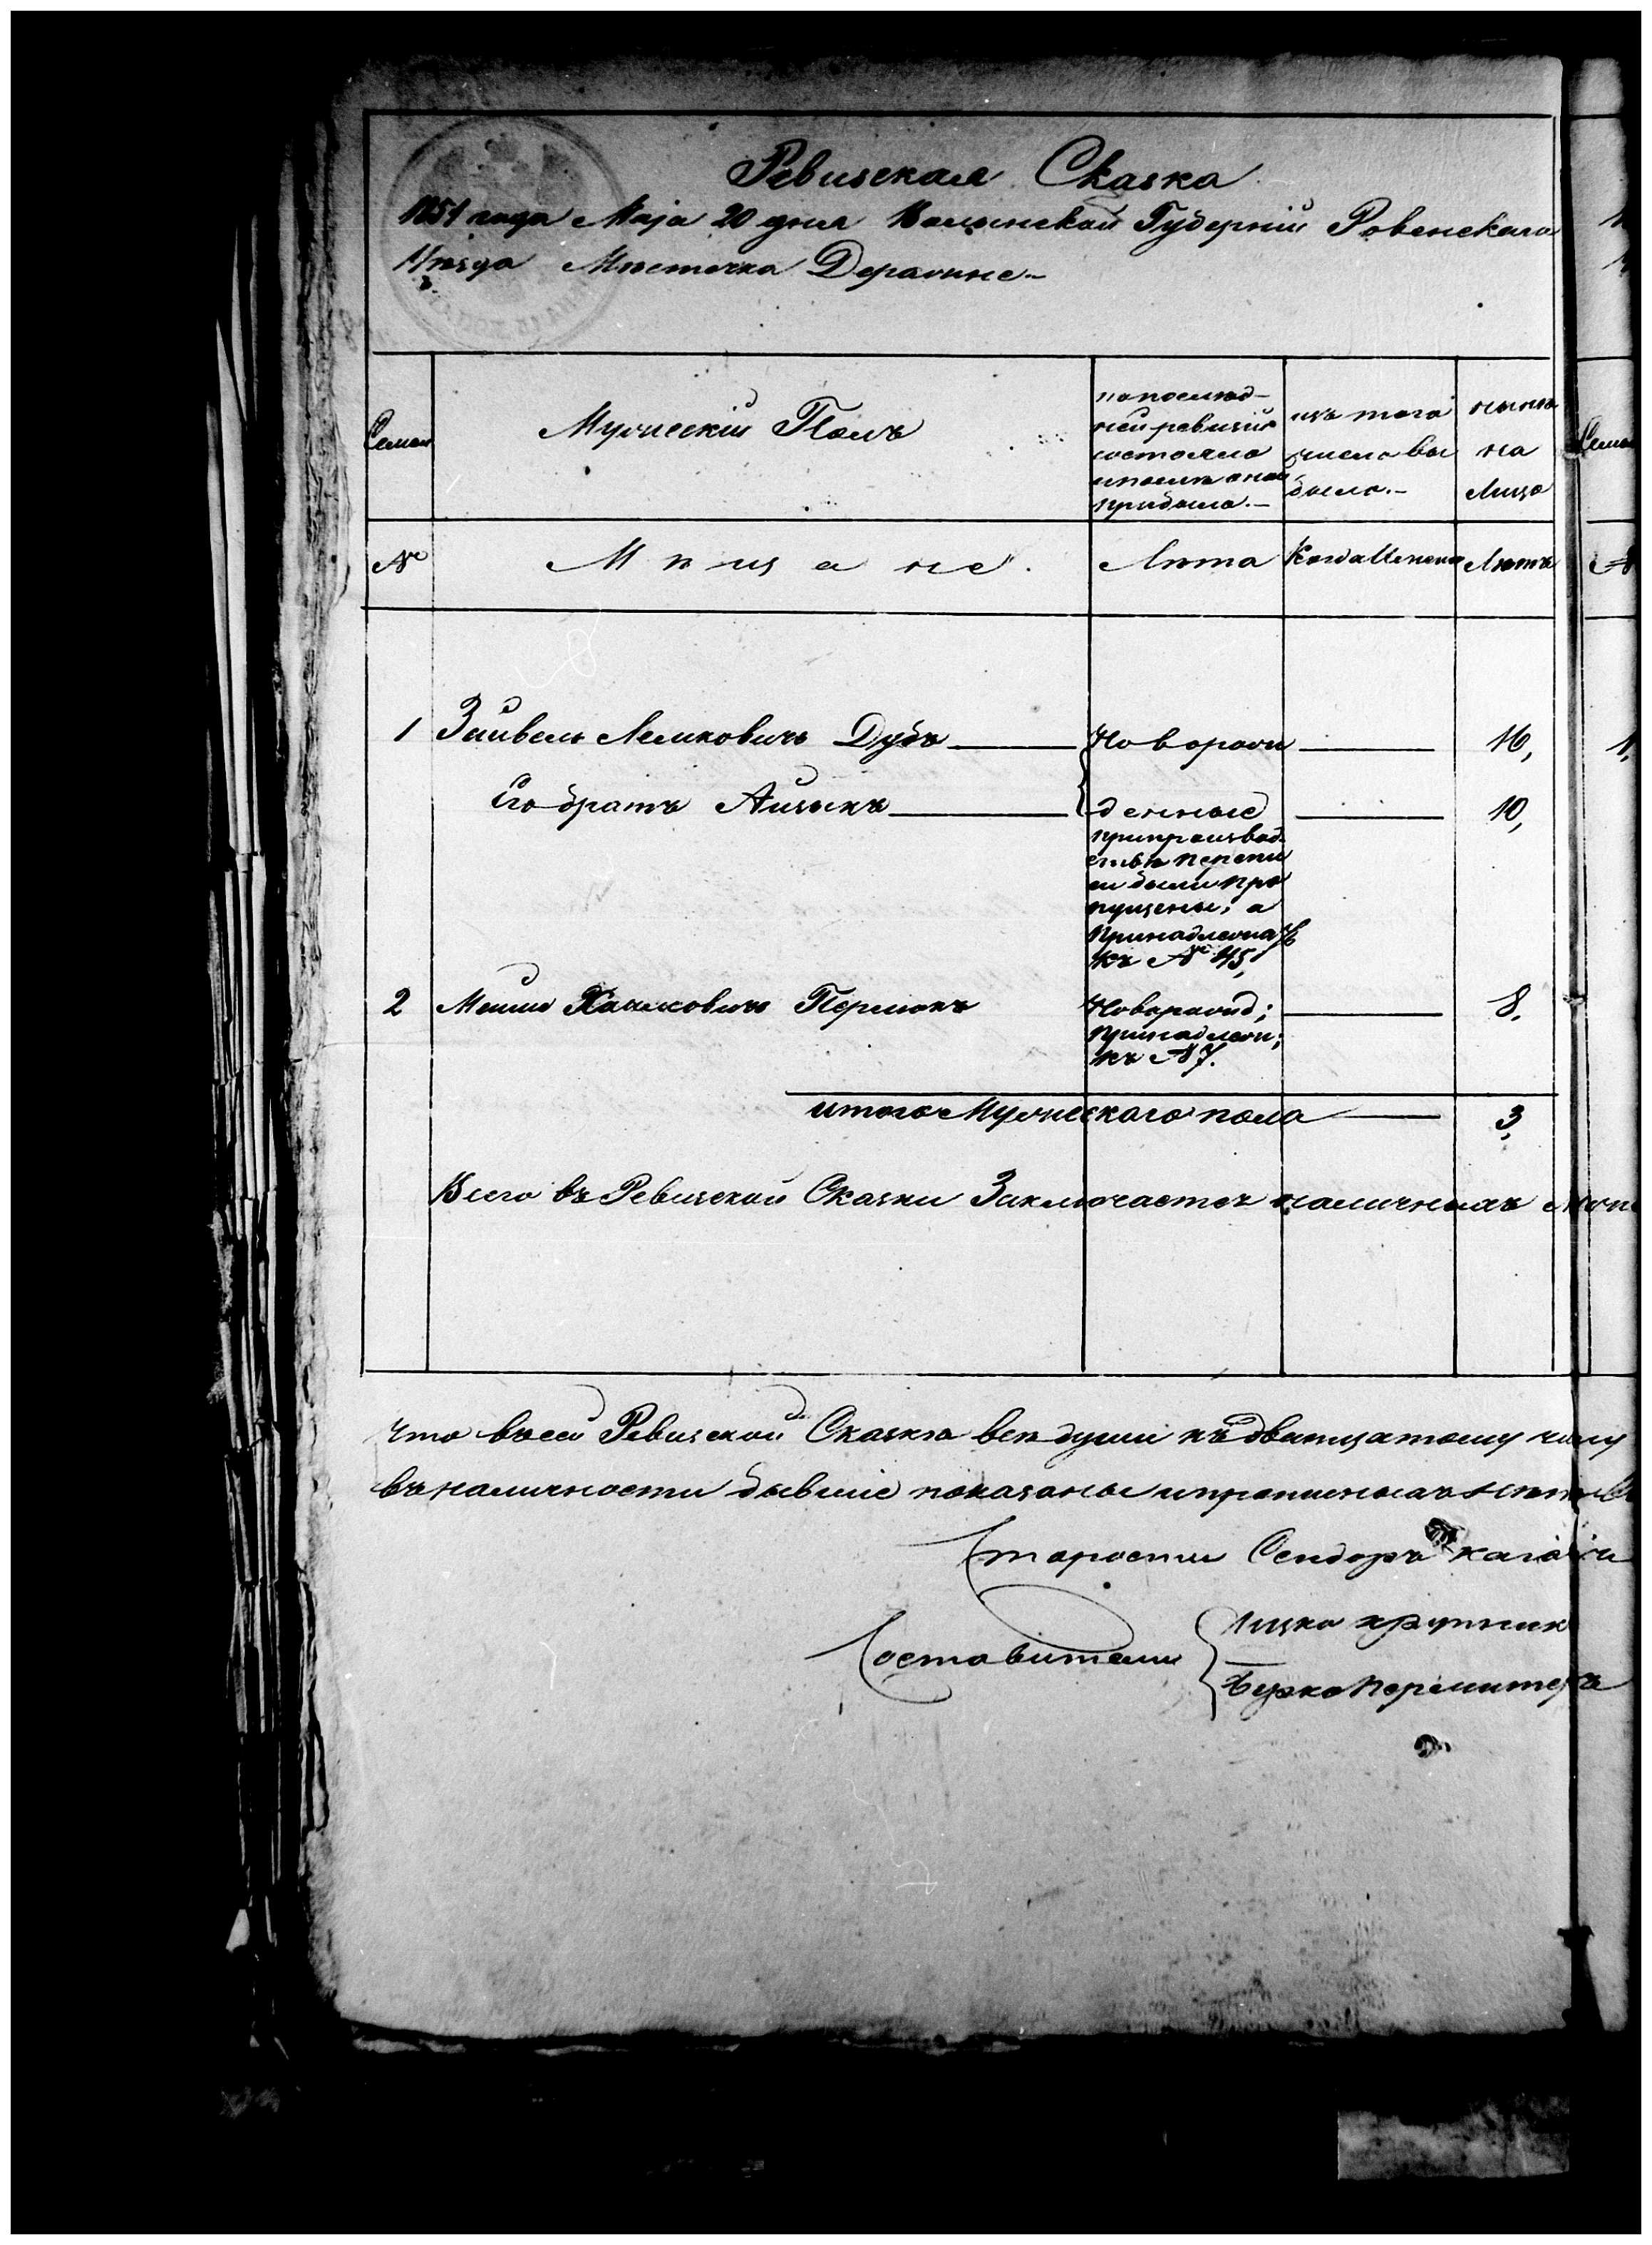 Ревизская Сказка
1851 года Маја 20 дня Волынской Губерніи Ровенскаго
Уѣзда Мѣстечка Деражне-
Семьи
Мужескій Полъ
по послѣд-
ней ревизіи
состояло
и послѣ оной
прибыло.-
изъ того
числа вы
было.-
нынѣ
на
лицо
№
Мѣщане.
Лѣта
Когда Именно
Лѣтъ
1 Зайвель Лейковичъ Дубъ Новорож 16,
Его братъ Айзыкъ денные 10,
при производ
ствѣ перепи
си были про
пущены, а
принадлежатъ
къ № 45,
2 Мошко Хаимовичъ Перлюкъ Новорожд; 8.
принадлеж;
къ № 7.
итого Мужескаго пола 3,
Всего въ Ревизской Сказки Заключается наличныхъ
что въ сей Ревизской Сказкѣ всѣ души къ дватцатому чису
въ наличности бывшіе показаны и прописныхъ нѣтъ
Старости Сендоръ
Составители Ицко крупник
Берко Перлмитеръ